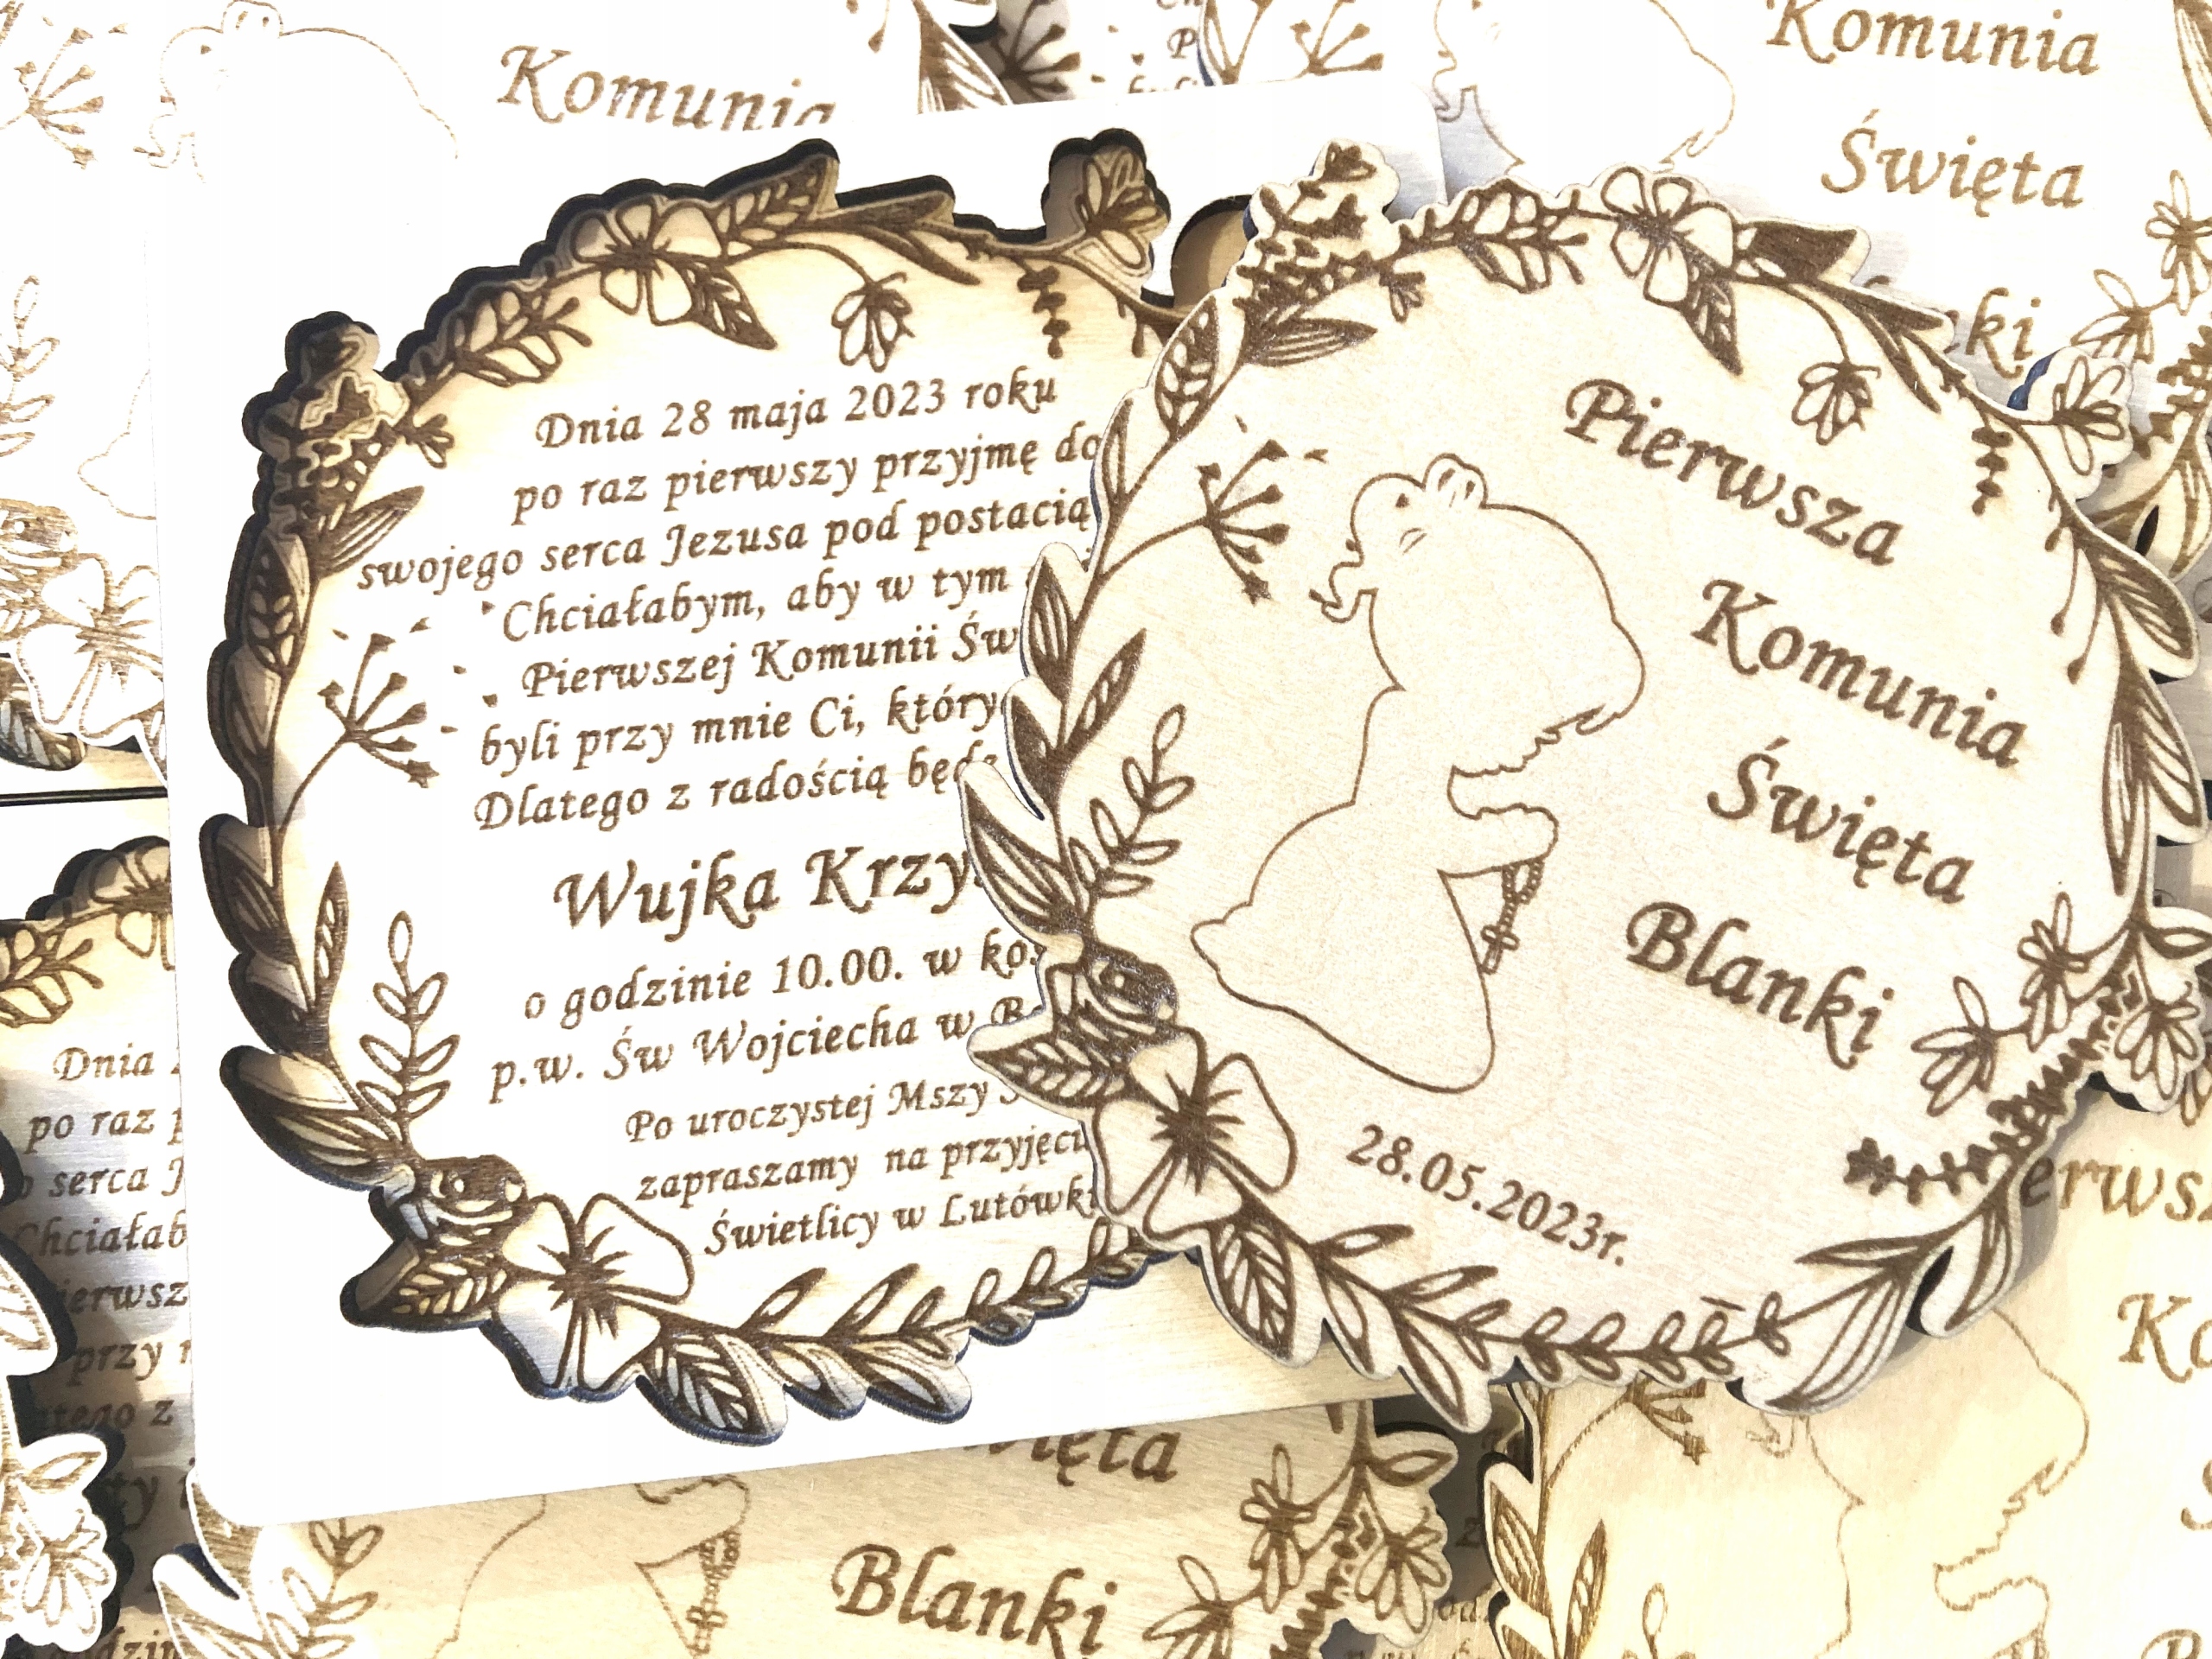 Komunia
Komunia
Święta
Dnia 28 maja 2023 roku
po raz pierwszy przyjmę do
swojego serca Jezusa pod postacią
Chciałabym, aby w tym
Pierwszej Komunii Św
byli przy mnie Ci, który
Dlatego z radością będę
Wujka Krzy
o godzinie 10.00. w ko
p.w. Św Wojciecha w B
Po uroczystej Mszy
zapraszamy na przyjęci
Świetlicy w Lutówk
Pierwsza
Komunia
Święta
Blanki
28.05.2023r.
Dnia
po raz p
serca J
Chciałab
ierwsz
przy
z
Święta
Blanki
erws
Ko